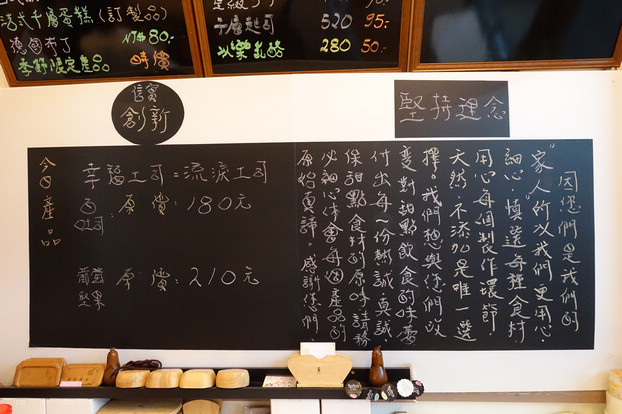 法式千層蛋糕(訂製品)
德國布丁 NT$80.-
季節限定產品 時價
千層起司 520 95.-
以樂乳酪 280 50.-
信實
創新
堅持理念
今日產品
幸福土司=流淚土司
白吐司:原價:180元
葡萄堅果 原價:210元
因您們是我們的
"家人"所以我們更用心.
細心.慎選每種食材
用心每個製作環節
天然.不添加是唯一選
擇.我們想與您們以
改變對甜點飲食的味蕾
付出每一份熱誠真誠
保甜點食材的原味請務
必細心体會每個產品的
原始真諦.感謝您們